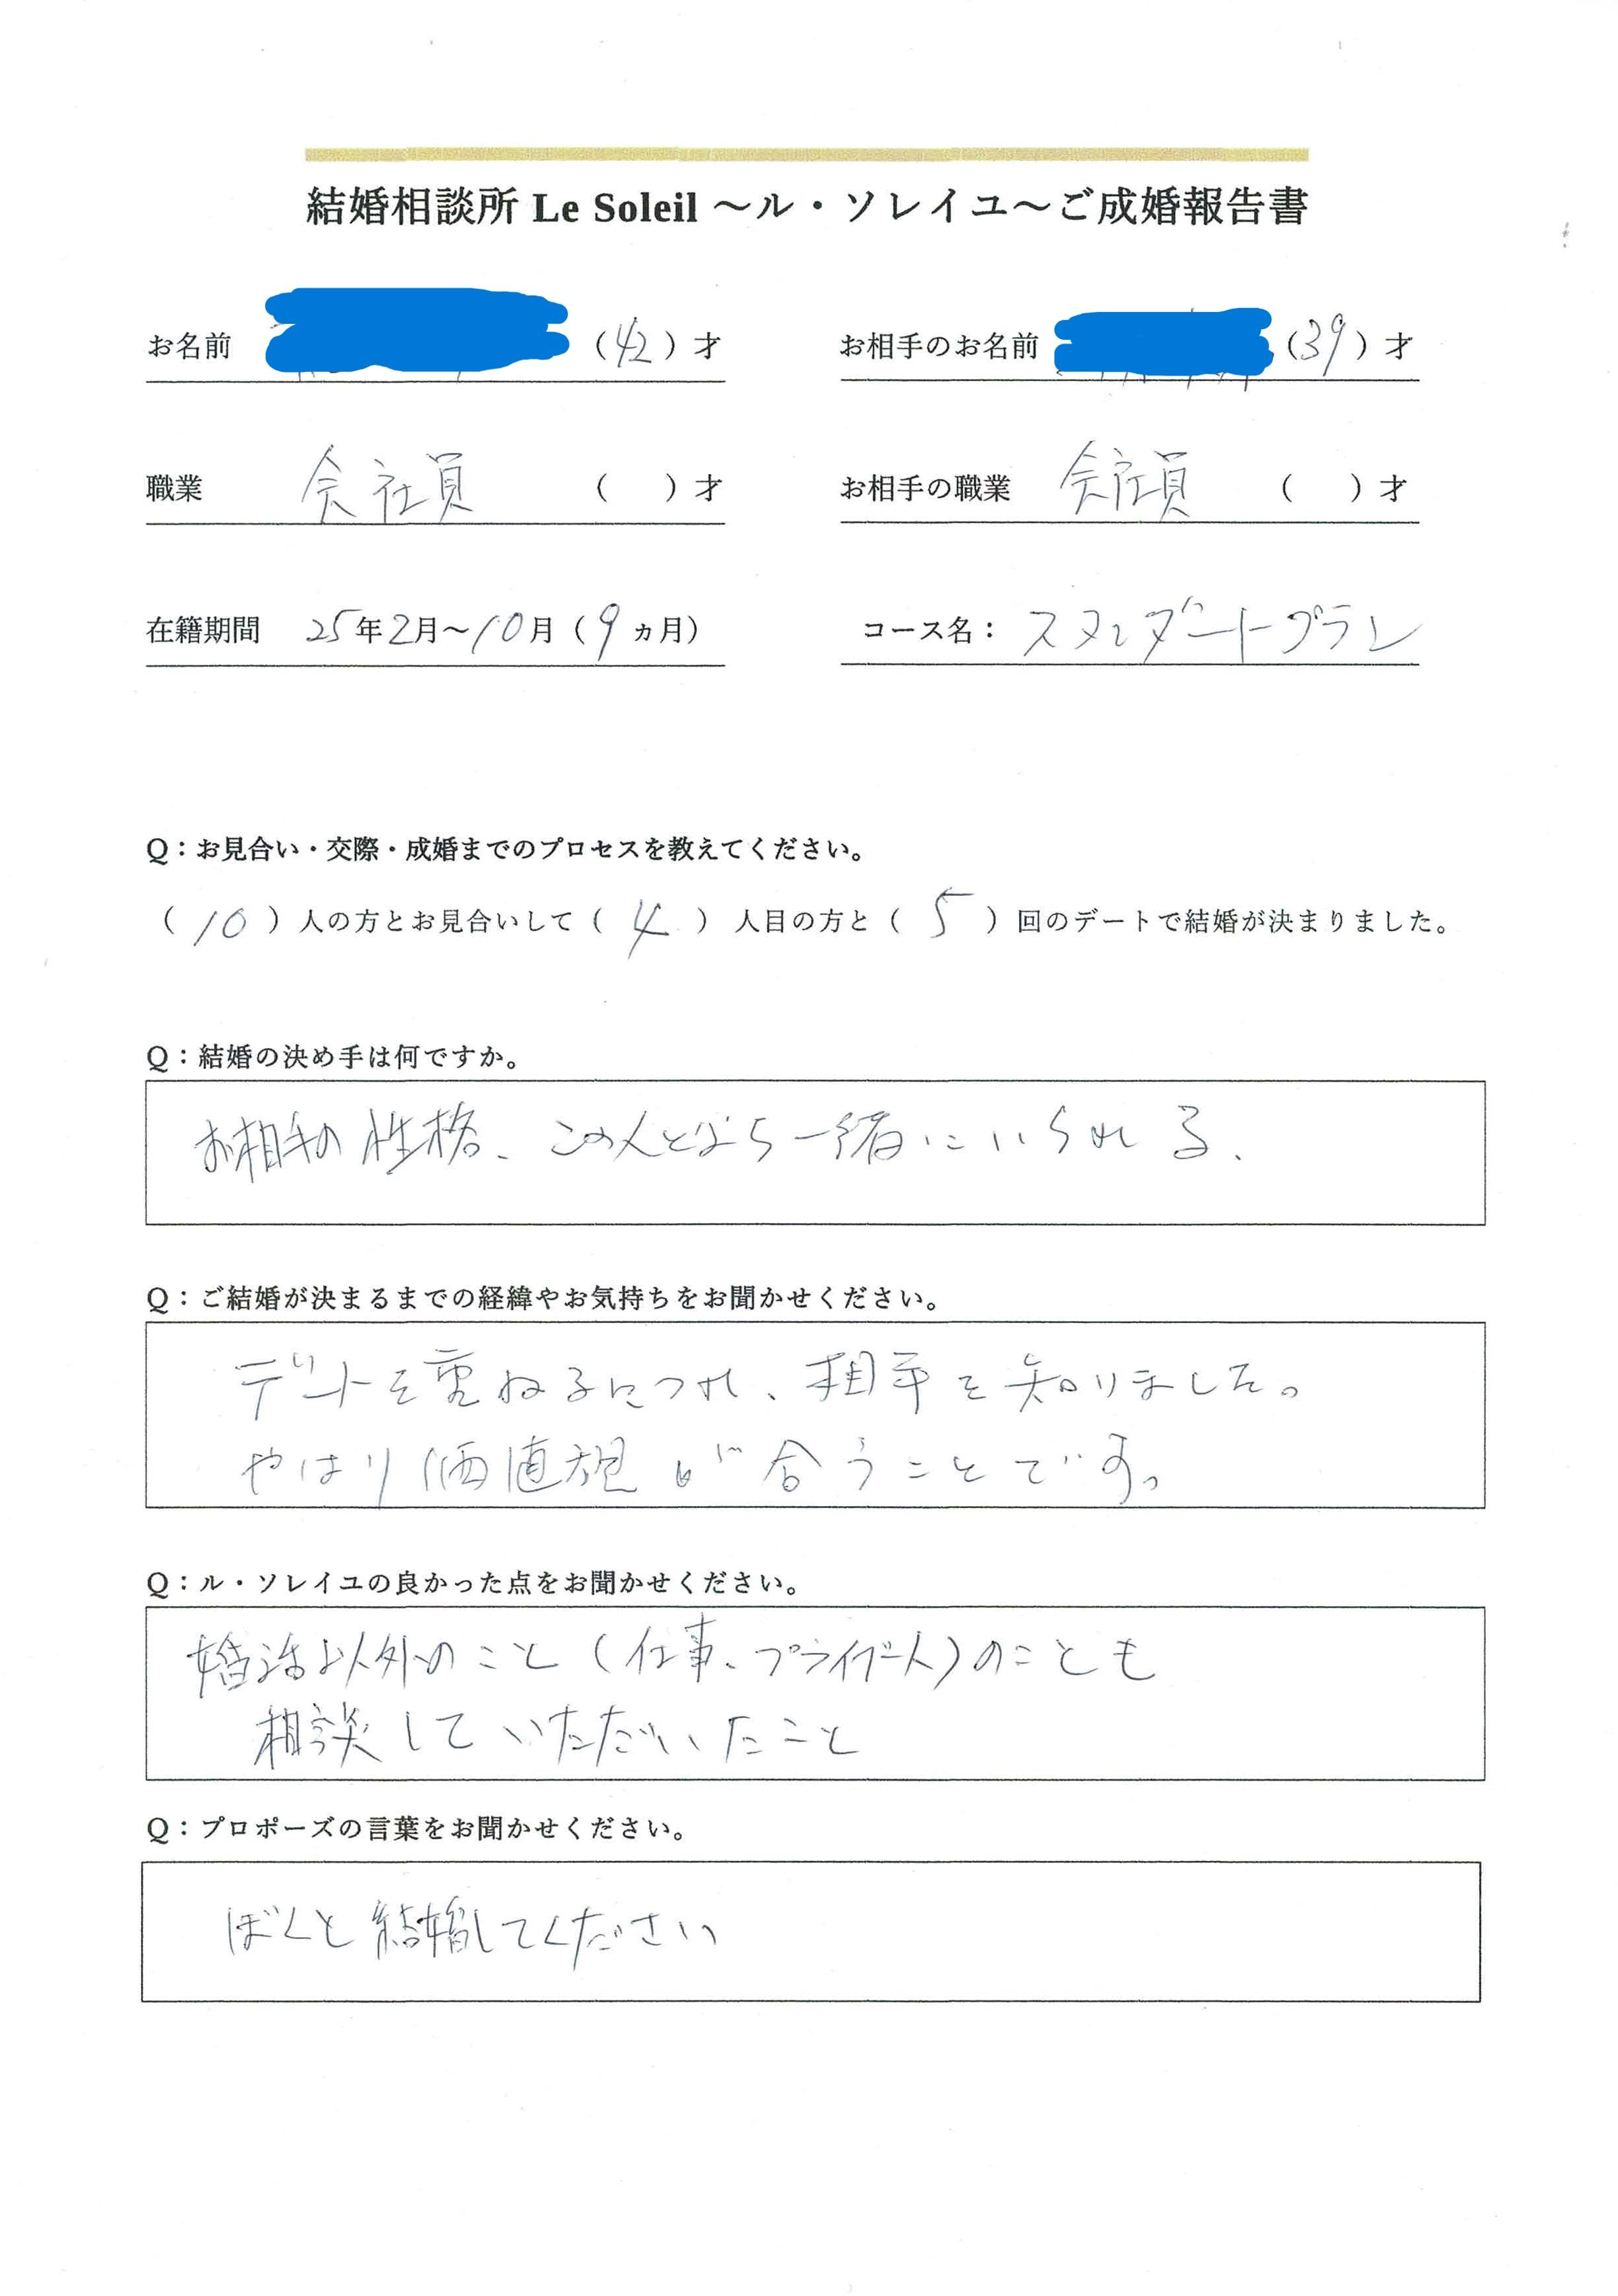 結婚相談所 Le Soleil ～ル・ソレイユ～ご成婚報告書
お名前 （42）才 お相手のお名前 （39）才
職業 会社員 （ ）才 お相手の職業 会社員 （ ）才
在籍期間 25年2月～10月（9ヵ月） コース名： スタンダートプラン
Q：お見合い・交際・成婚までのプロセスを教えてください。
（10）人の方とお見合いして（4）人目の方と（5）回のデートで結婚が決まりました。
Q：結婚の決め手は何ですか。
お相手の性格、この人となら一緒にいられる、
Q：ご結婚が決まるまでの経緯やお気持ちをお聞かせください。
デートを重ねるにつれ、相手を知りました。
やはり価値観が合うことです。
Q：ル・ソレイユの良かった点をお聞かせください。
婚活以外のこと（仕事、プライベート）のことも
相談していただいたこと
Q：プロポーズの言葉をお聞かせください。
ぼくと結婚してください